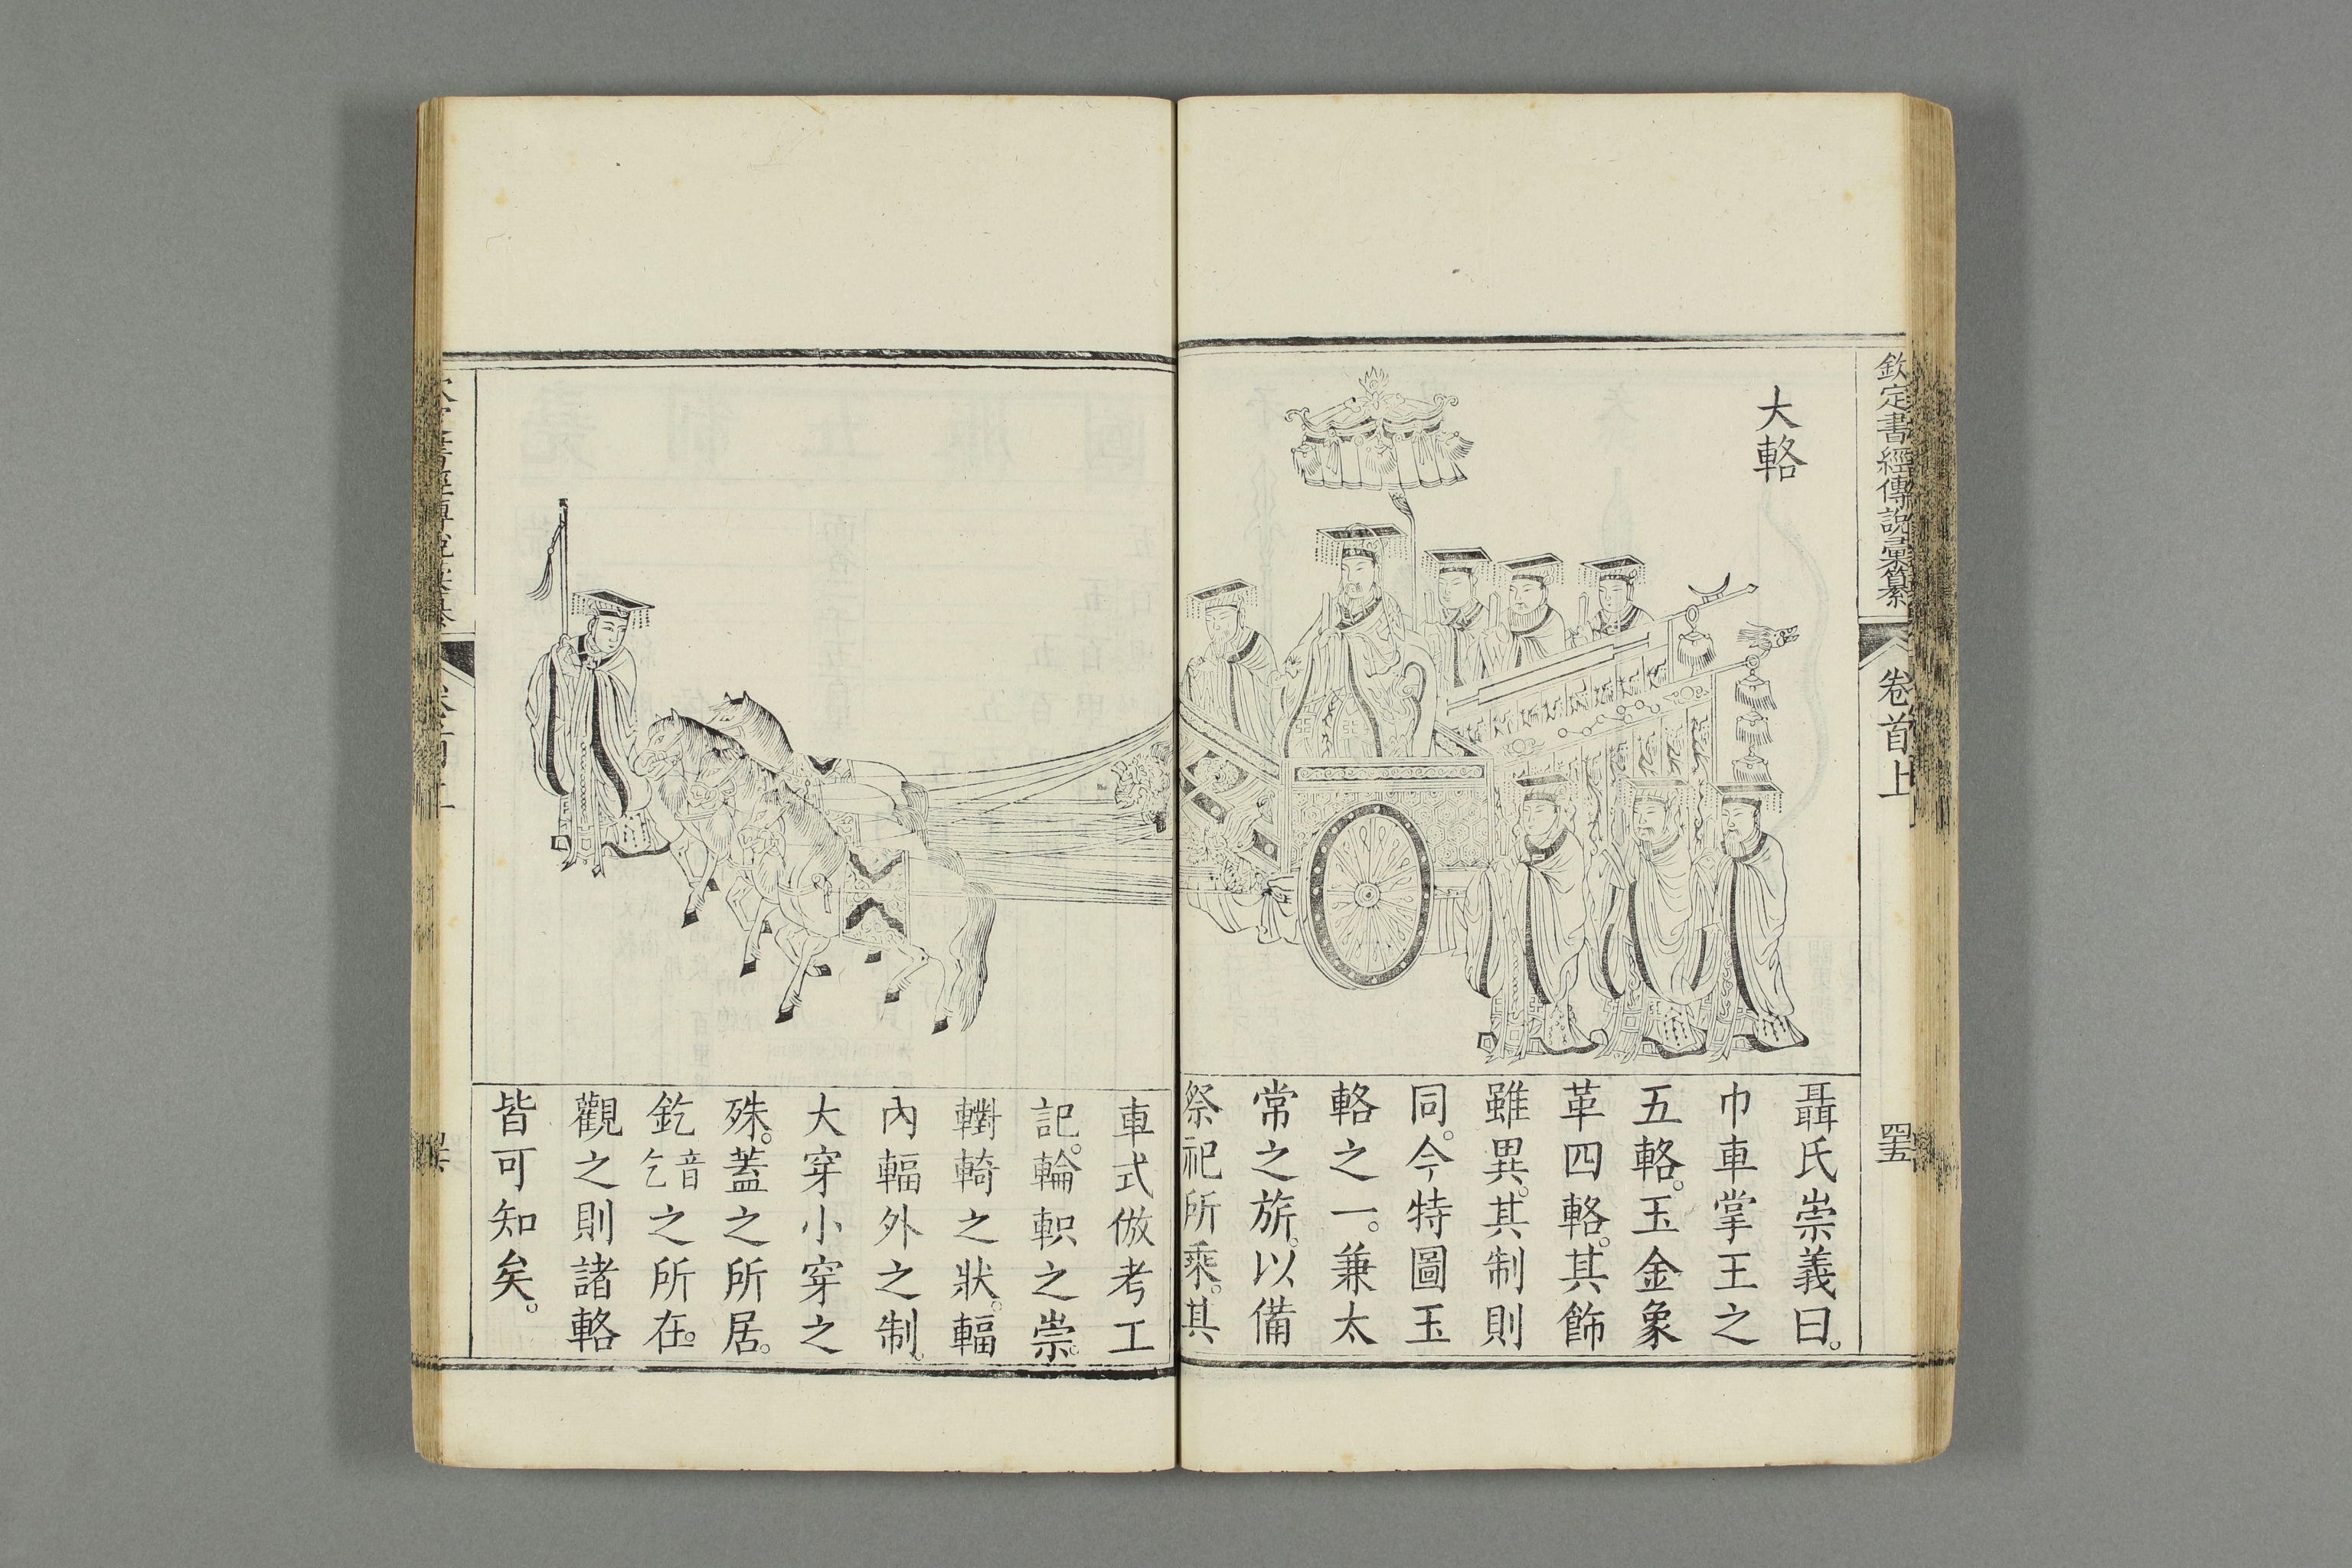 欽定書經傳說彙纂
卷首上
四五
大輅
聶氏崇義曰。
巾車掌王之
五輅。玉金象
革四輅。其飾
雖異。其制則
同。今特圖玉
輅之一。兼太
常之旂。以備
祭祀所乘。其
車式倣考工
記。輪軹之崇。
轛輢之狀。輻
內輻外之制。
大穿小穿之
殊。蓋之所居。
釳音乞之所在。
觀之則諸輅
皆可知矣。